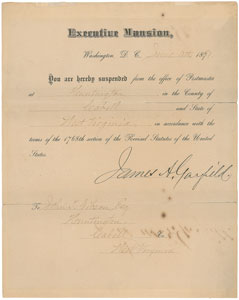 Executive Mansion,
Washington, D. C. June 187
You are hereby suspended from the office of Postmaster
at Huntington in the County of
Cabell and State of
West Virginia in accordance with the
terms of the 1768th section of the Revised Statutes of the United
States.
James A. Garfield.
To
Huntington
Cabell
West Virginia